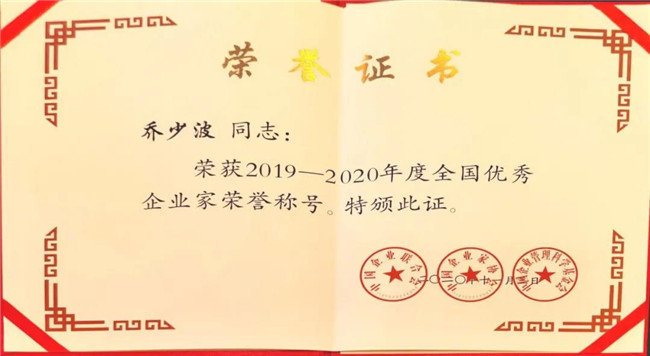 荣誉证书
乔少波 同志：
荣获2019—2020年度全国优秀
企业家荣誉称号。特颁此证。
中国企业联合会
中国企业家协会
中国企业管理科学基金会